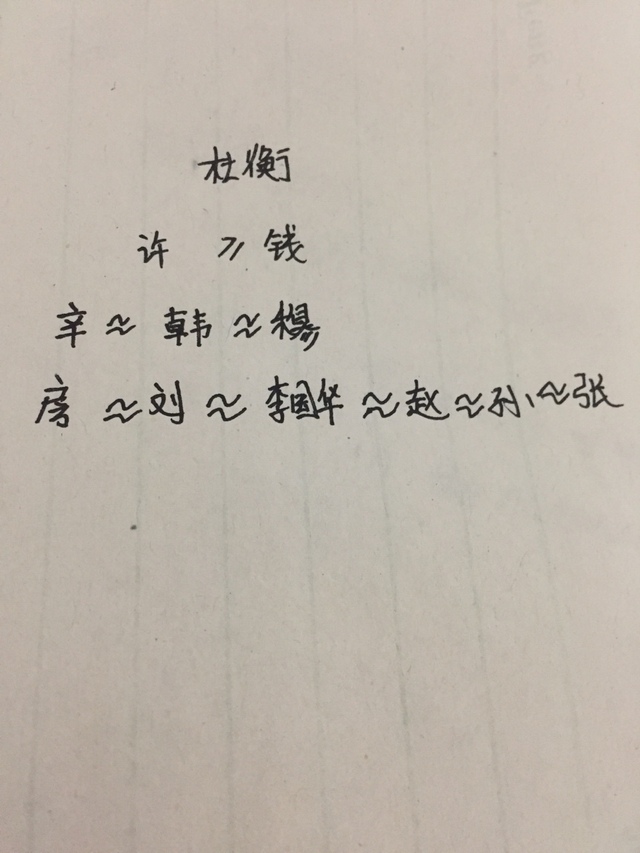 杜衡
许 ≥ 钱
辛 ≈ 韩 ≈ 穆
房 ≈ 刘 ≈ 李国华 ≈ 赵 ≈ 孙 ≈ 张